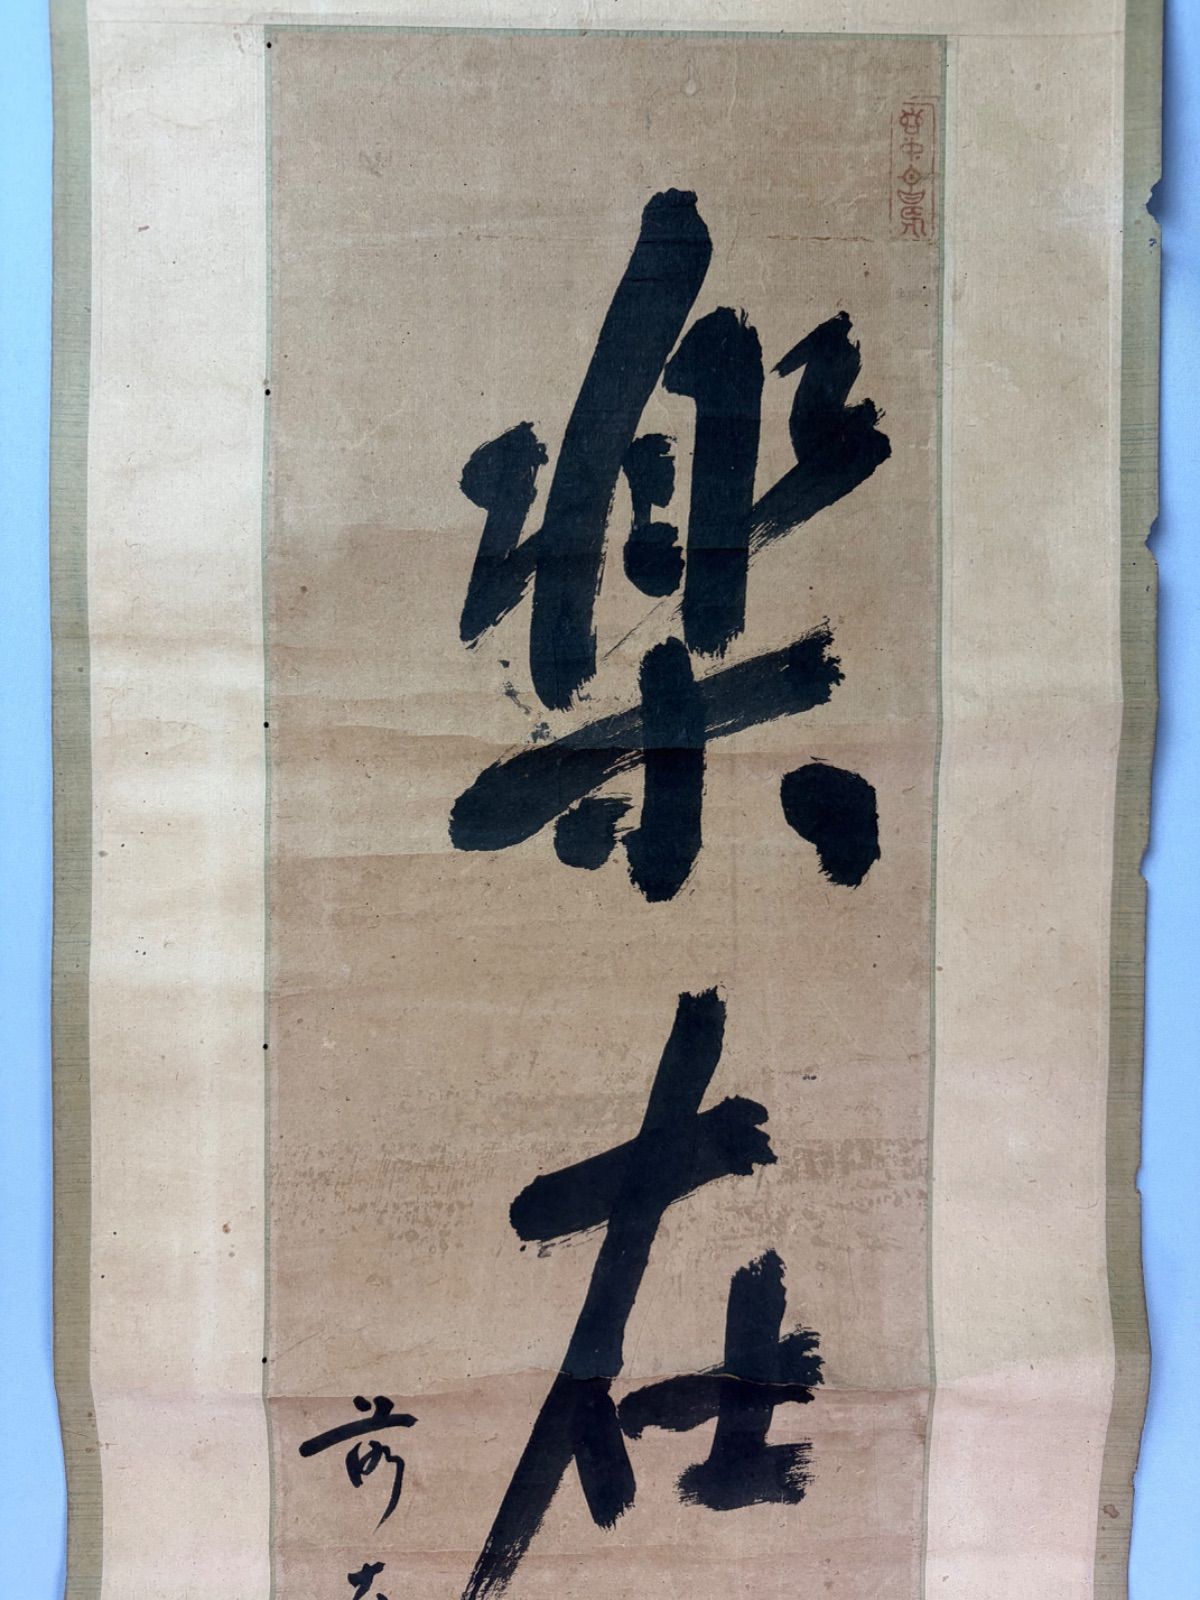 樂在
前大